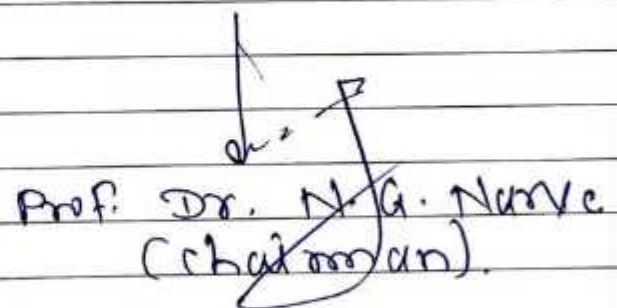 Prof. Dr. N.G. Narve
(Chairman).